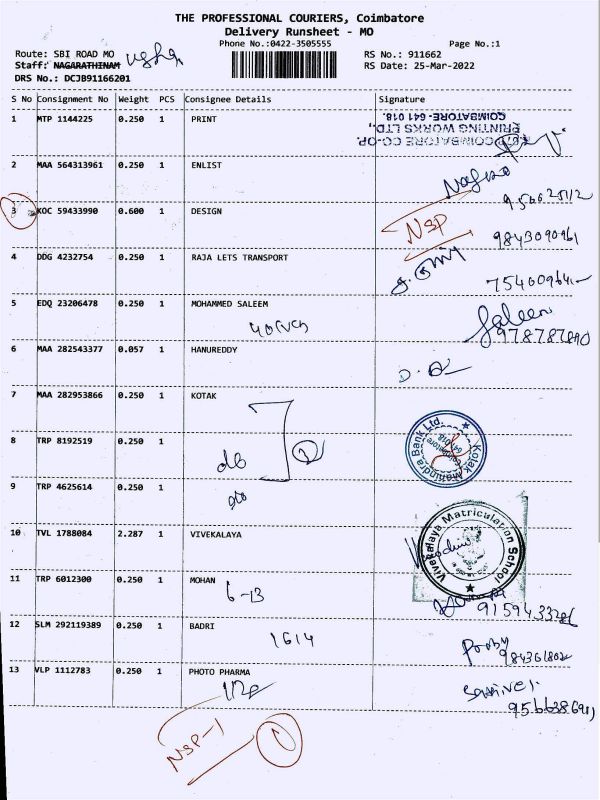 THE PROFESSIONAL COURIERS, Coimbatore
Delivery Runsheet - MO
Phone No.:0422-3505555 Page No.:1
Route: SBI ROAD MO RS No.: 911662
Staff: NAGARATHINAM usha RS Date: 25-Mar-2022
DRS No.: DCJB91166201
S No Consignment No Weight PCS Consignee Details Signature
1 MTP 1144225 0.250 1 PRINT
COIMBATORE CO-OP.
PRINTING WORKS LTD.,
COIMBATORE- 641 018.
2 MAA 564313961 0.250 1 ENLIST
3 KOC 59433990 0.600 1 DESIGN NSP
9843090961
4 DDG 4232754 0.250 1 RAJA LETS TRANSPORT
5 EDQ 23206478 0.250 1 MOHAMMED SALEEM Saleem
6 MAA 282543377 0.057 1 HANUREDDY
7 MAA 282953866 0.250 1 KOTAK
8 TRP 8192519 0.250 1 do 2 Kotak Mahindra Bank Ltd. Coimbatore
9 TRP 4625614 0.250 1 do
10 TVL 1788084 2.287 1 VIVEKALAYA Vivekalaya Matriculation School
11 TRP 6012300 0.250 1 MOHAN
6-13
12 SLM 292119389 0.250 1 BADRI
1614
13 VLP 1112783 0.250 1 PHOTO PHARMA
NSP-1 1